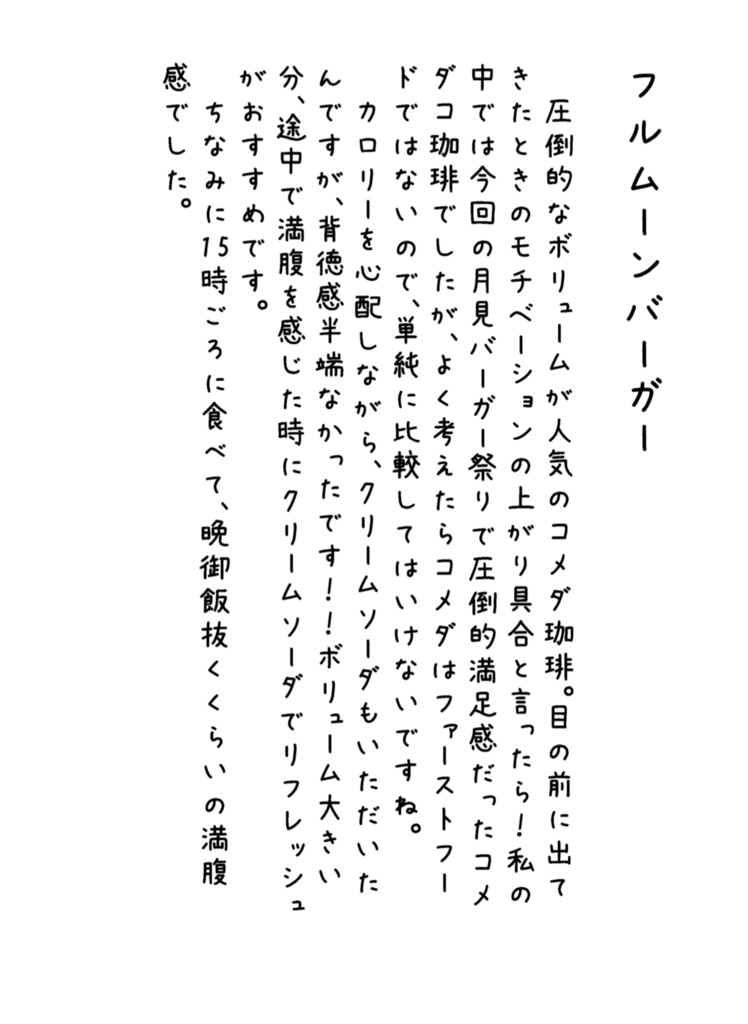 フルムーンバーガー
圧倒的なボリュームが人気のコメダ珈琲。目の前に出て
きたときのモチベーションの上がり具合と言ったら！私の
中では今回の月見バーガー祭りで圧倒的満足感だったコメ
ダコ珈琲でしたが、よく考えたらコメダはファーストフー
ドではないので、単純に比較してはいけないですね。
カロリーを心配しながら、クリームソーダもいただいた
んですが、背徳感半端なかったです！！ボリューム大きい
分、途中で満腹を感じた時にクリームソーダでリフレッシュ
がおすすめです。
ちなみに15時ごろに食べて、晩御飯抜くくらいの満腹
感でした。